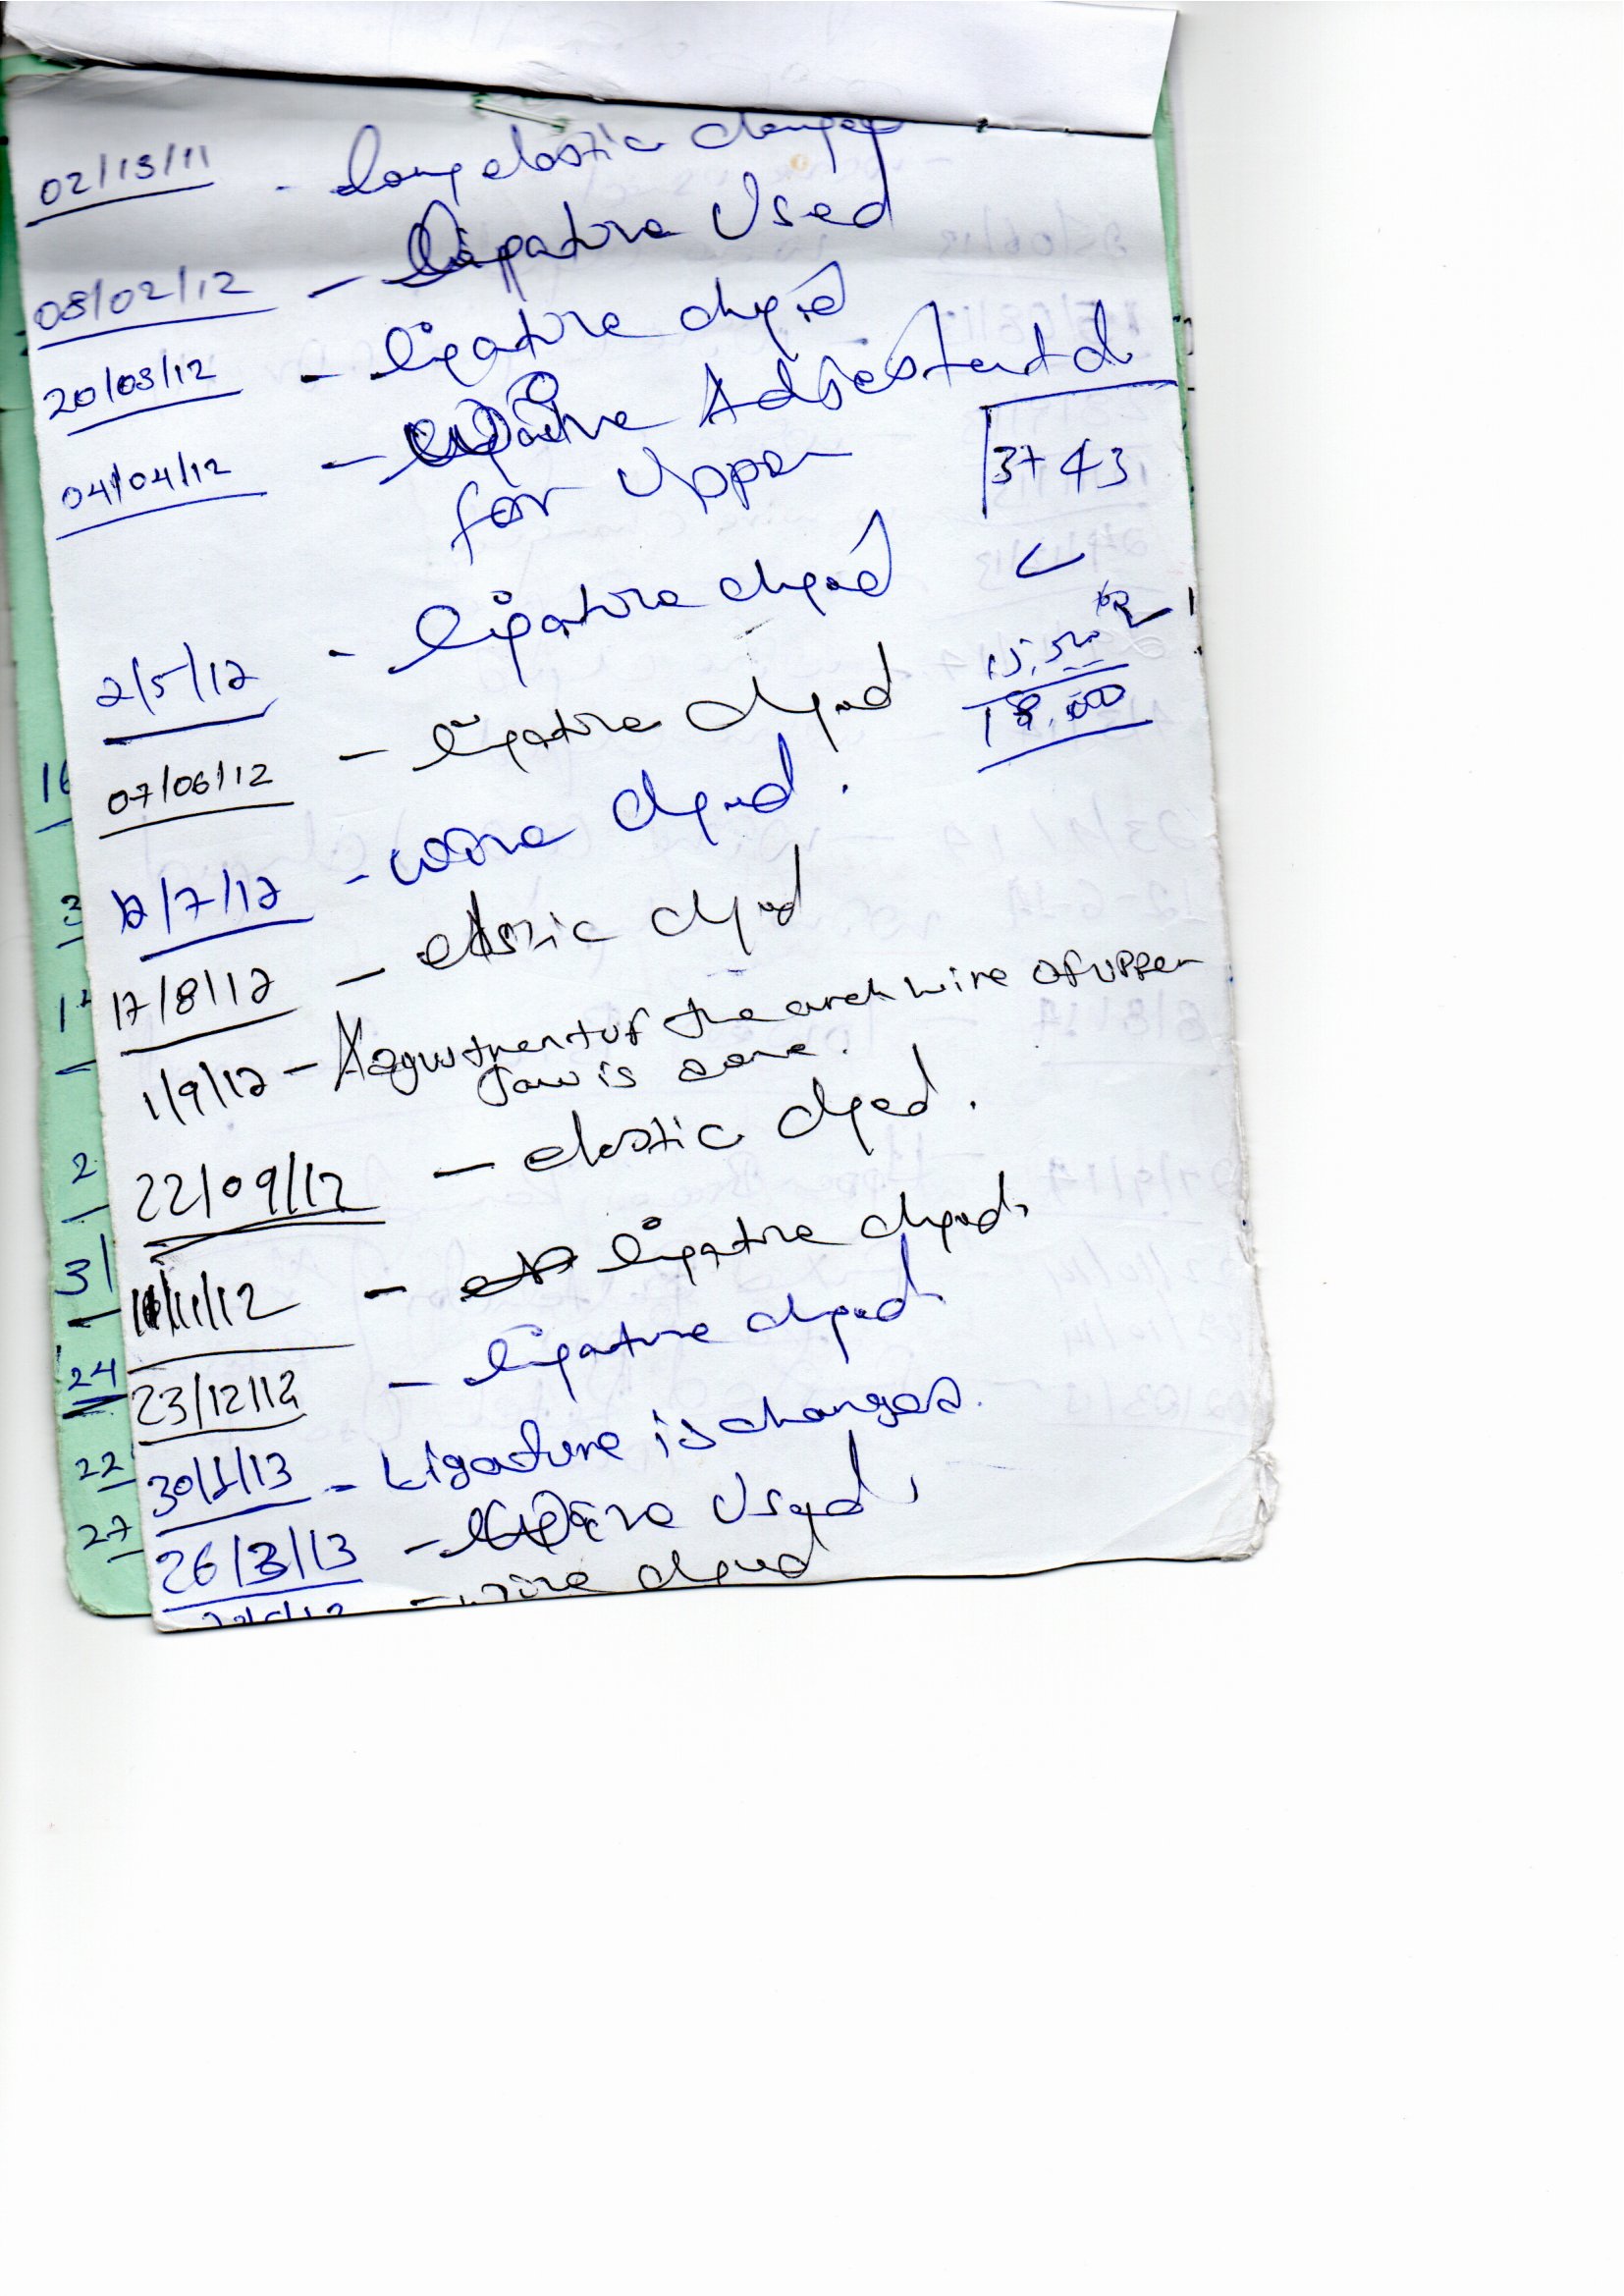 02/13/11 - Long elastic changed
08/02/12 - Ligature Used
20/03/12 - ligature chged
04/04/12 - Adjestent d
for upper
3+43
2/5/12 - ligature chged
18.000
07/06/12 - ligature chged
12/7/12 - wire chged.
17/8/12 - elastic chged
1/9/12 - Adgustment of the arch wire of upper
Jaw is done.
22/09/12 - elastic chged.
11/11/12 - ligature chged.
23/12/12 - ligature chged
30/1/13 - Ligature is changed.
26/3/13 - Used
- wire chged
16
3
2
31
24
22
27